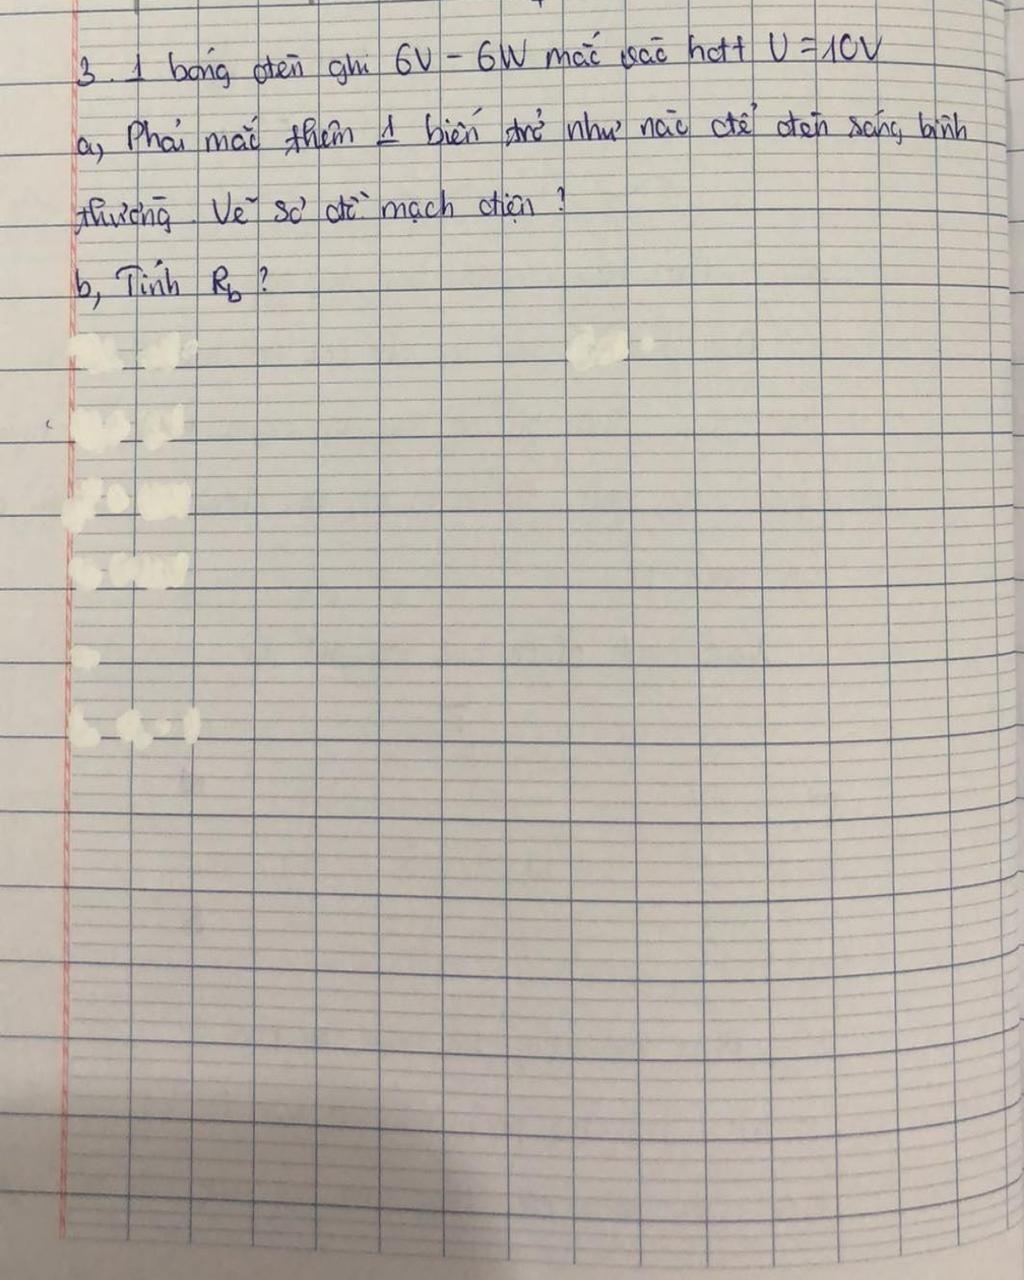 3. 1 bóng đèn ghi 6V - 6W mắc vào hđt U = 10V
a, Phải mắc thêm 1 biến trở như nào để đèn sáng bình
thường. Vẽ sơ đồ mạch điện ?
b, Tính Rb ?